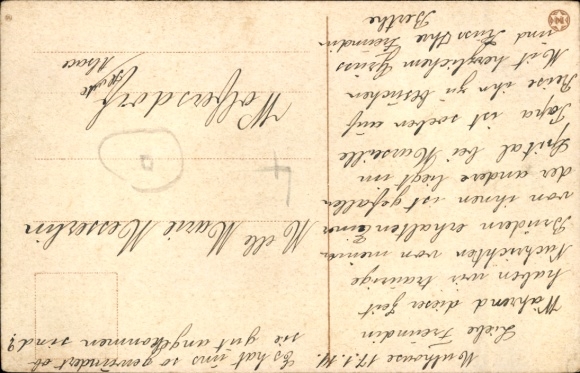 Mulhouse 17.1.14.
Liebe Freundin
Während dieser Zeit
haben wir traurige
Nachrichten von meinen
Brüdern erhalten Einer
von ihnen ist gefallen
der andere liegt im
Spital bei Marseille
Papa ist soeben auf
Reise ihn zu besuchen
Mit herzlichem Gruss
und Kuss Ihre Freundin
Berthe
Es hat uns so gewundert ob
sie gut angekommen sind?
M elle Marie Messerlin
Wolfersdorf
Alsace